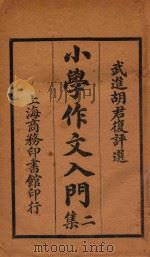 武進胡君復評選
小學作文入門
二集
上海商務印書館印行
www.toutu.com